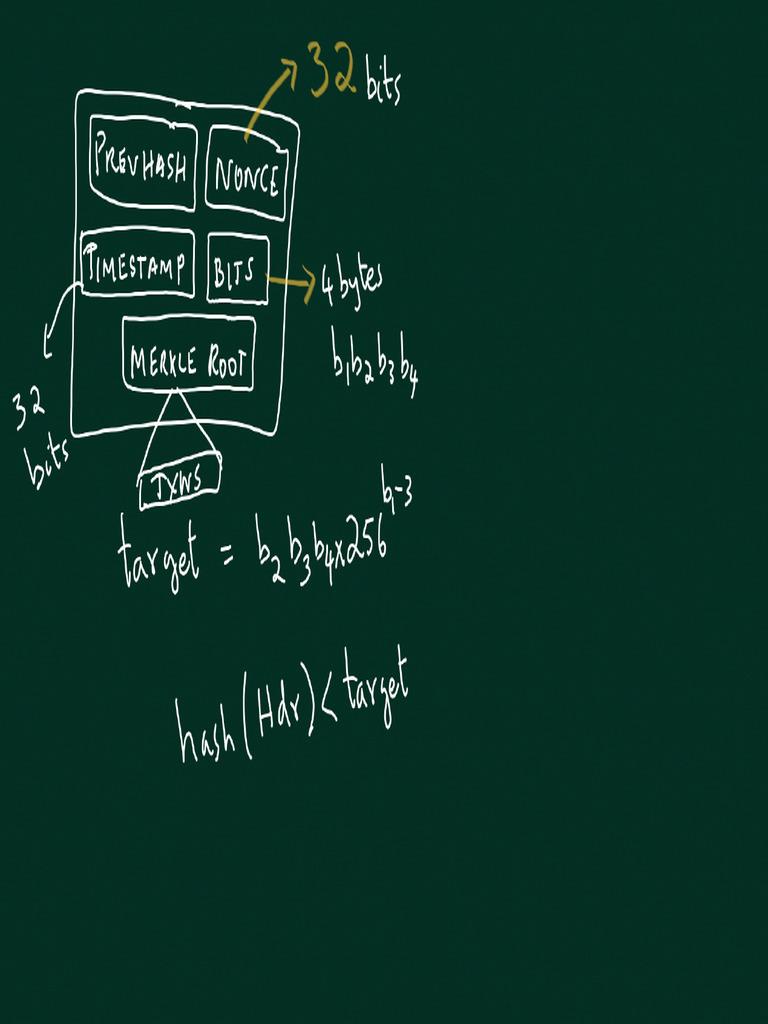 32 bits
PREVHASH NONCE
TIMESTAMP BITS
4 bytes
b₁b₂b₃b₄
MERKLE ROOT
32
bits
TXNS
target = b₂b₃b₄x256^(b₁-3)
hash(Hdr)<target